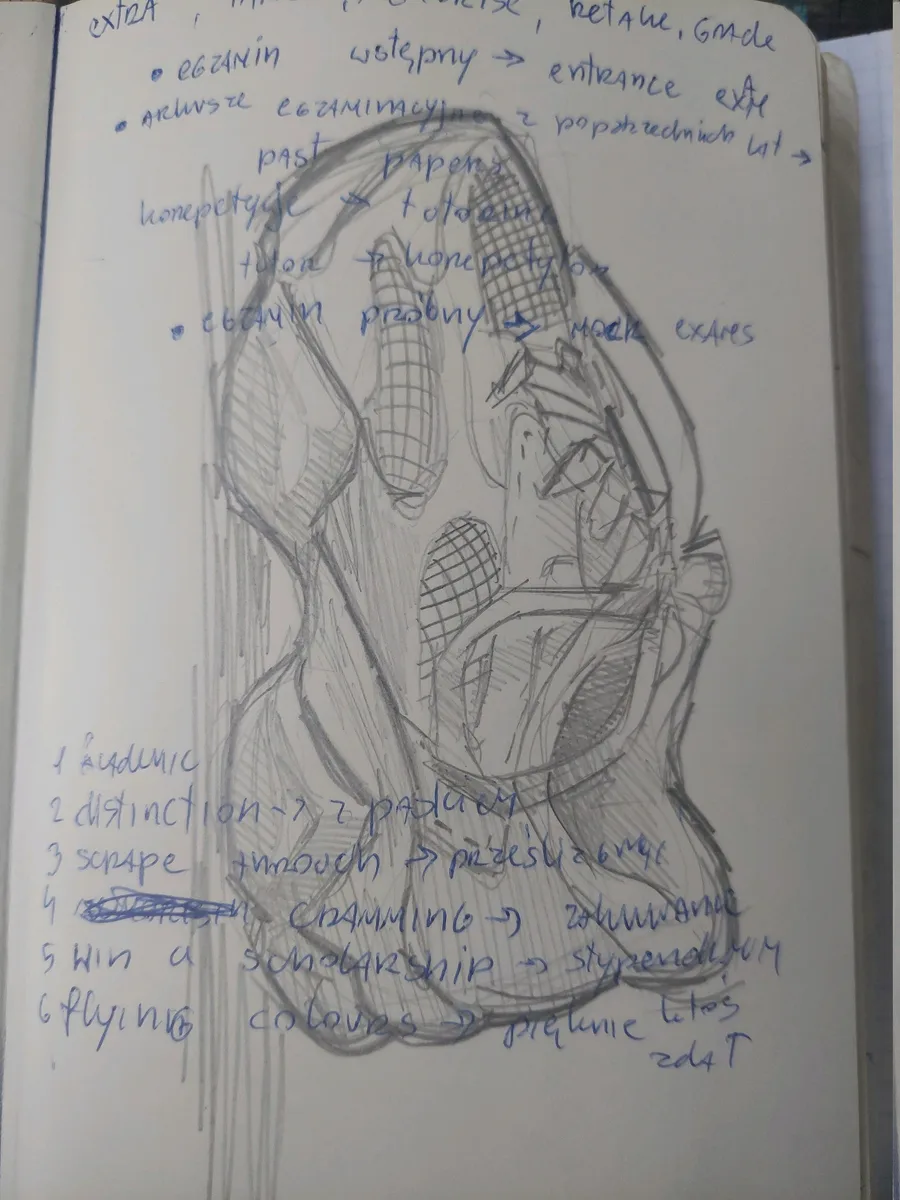 extra, retake, Grade
• egzamin wstępny → entrance exam
• Arkusze egzaminacyjne z poprzednich lat →
past papers
korepetycje → tutoring
tutor → korepetytor
• egzamin próbny → mock exames
1 Academic
2 distinction → z
3 scrape through →
4 cramming → zakuwanie
5 win a scholarship → stypendium
6 flying colours → pięknie ktoś
zdał